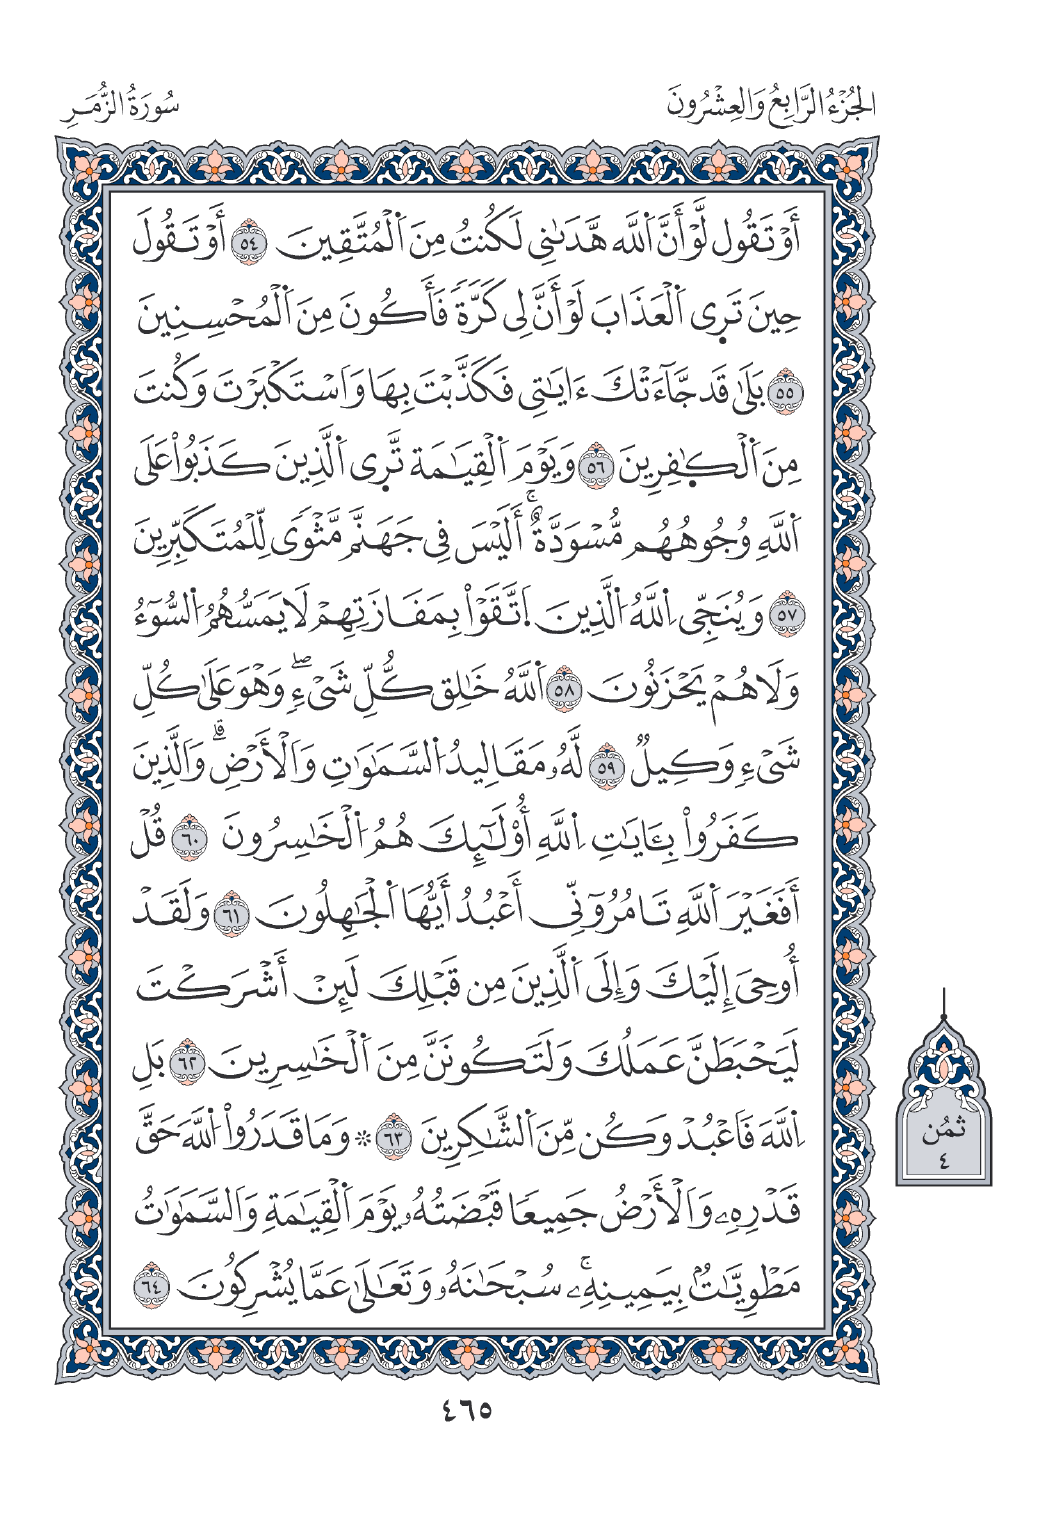 الجُزْءُ الرَّابِعُ وَالعِشْرُونَ
سُورَةُ الزُّمَرِ
أَوْ تَقُول لَّوْ أَنَّ اَ۬للَّه هَّدَىٰنِي لَكُنتُ مِنَ اَ۬لْمُتَّقِينَ ٥٤ أَوْ تَقُولَ
حِينَ تَرَي اَ۬لْعَذَابَ لَوْ أَنَّ لِي كَرَّةٗ فَأَكُونَ مِنَ اَ۬لْمُحْسِنِينَ
٥٥ بَلَىٰ قَد جَّآءَتْكَ ءَايَٰتِي فَكَذَّبْتَ بِهَا وَاَسْتَكْبَرْتَ وَكُنتَ
مِنَ اَ۬لْكٰ۪فِرِينَ ٥٦ وَيَوْمَ اَ۬لْقِيَٰمَة تَّرَي اَ۬لَّذِينَ كَذَبُواْ عَلَى
اَ۬للَّهِ وُجُوهُهُم مُّسْوَدَّةٌۚ أَلَيْسَ فِي جَهَنَّم مَّثْوٗى لِّلْمُتَكَبِّرِينَ
٥٧ وَيُنَجِّي اِ۬للَّهُ اُ۬لَّذِينَ اَ۪تَّقَوْاْ بِمَفَازَتِهِمْ لَا يَمَسُّهُمُ اُ۬لسُّوٓءُ
وَلَا هُمْ يَحْزَنُونَ ٥٨ اَ۬للَّهُ خَٰلِق كُّلِّ شَيْءٖۖ وَهْوَ عَلَىٰ كُلِّ
شَيْءٖ وَكِيلٞ ٥٩ لَّهُۥ مَقَالِيدُ اُ۬لسَّمَٰوَٰتِ وَالْأَرْضِۗ وَالَّذِينَ
كَفَرُواْ بِـَٔايَٰتِ اِ۬للَّهِ أُوْلَٰٓئِكَ هُمُ اُ۬لْخَٰسِرُونَ ٦٠ قُلْ
أَفَغَيْرَ اَ۬للَّهِ تَامُرُوٓنِّي أَعْبُدُ أَيُّهَا اَ۬لْجَٰهِلُونَ ٦١ وَلَقَدْ
أُوحِيَ إِلَيْكَ وَإِلَى اَ۬لَّذِينَ مِن قَبْلِكَ لَئِنْ أَشْرَكْتَ
لَيَحْبَطَنَّ عَمَلُكَ وَلَتَكُونَنَّ مِنَ اَ۬لْخَٰسِرِينَ ٦٢ بَلِ
اِ۬للَّهَ فَاعْبُدْ وَكُن مِّنَ اَ۬لشَّٰكِرِينَ ٦٣ ۞ وَمَا قَدَرُواْ اُ۬للَّهَ حَقَّ
قَدْرِهِۦ وَالْأَرْضُ جَمِيعٗا قَبْضَتُهُۥ يَوْمَ اَ۬لْقِيَٰمَةِ وَالسَّمَٰوَٰتُ
مَطْوِيَّٰتُۢ بِيَمِينِهِۦۚ سُبْحَٰنَهُۥ وَتَعَٰلَىٰ عَمَّا يُشْرِكُونَ ٦٤
ثمُن
٤
٤٦٥